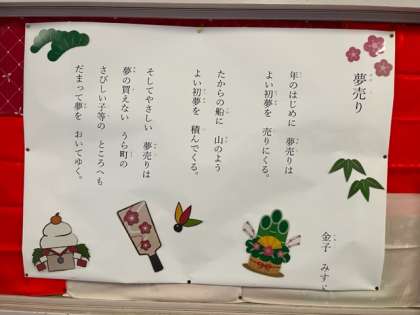 夢売り
年のはじめに 夢売りは
よい初夢を 売りにくる。
たからの船に 山のよう
よい初夢を 積んでくる。
そしてやさしい 夢売りは
夢の買えない うら町の
さびしい子等の ところへも
だまって夢を おいてゆく。
金子 みすゞ